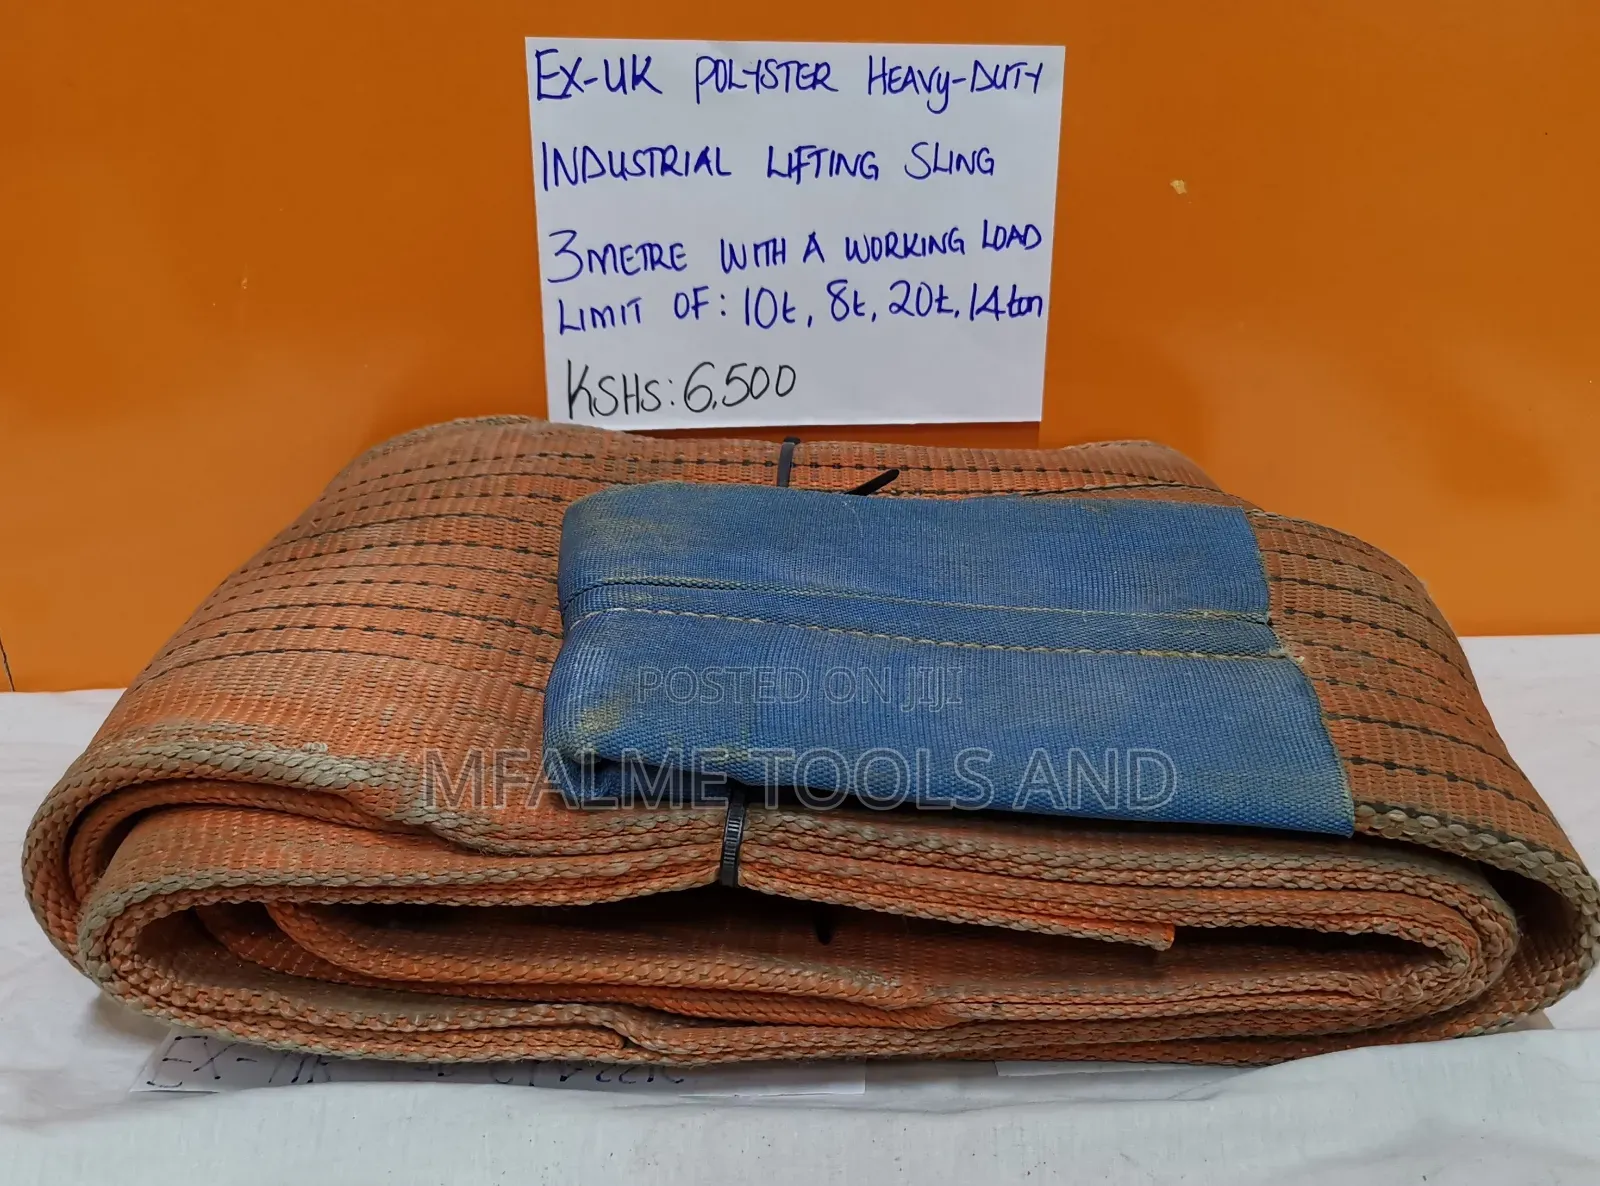 EX-UK POLYSTER HEAVY-DUTY
INDUSTRIAL LIFTING SLING
3 METRE WITH A WORKING LOAD
LIMIT OF: 10t, 8t, 20t, 14 ton
KSHS: 6,500
POSTED ON JIJI
MFALME TOOLS AND
EX-UK